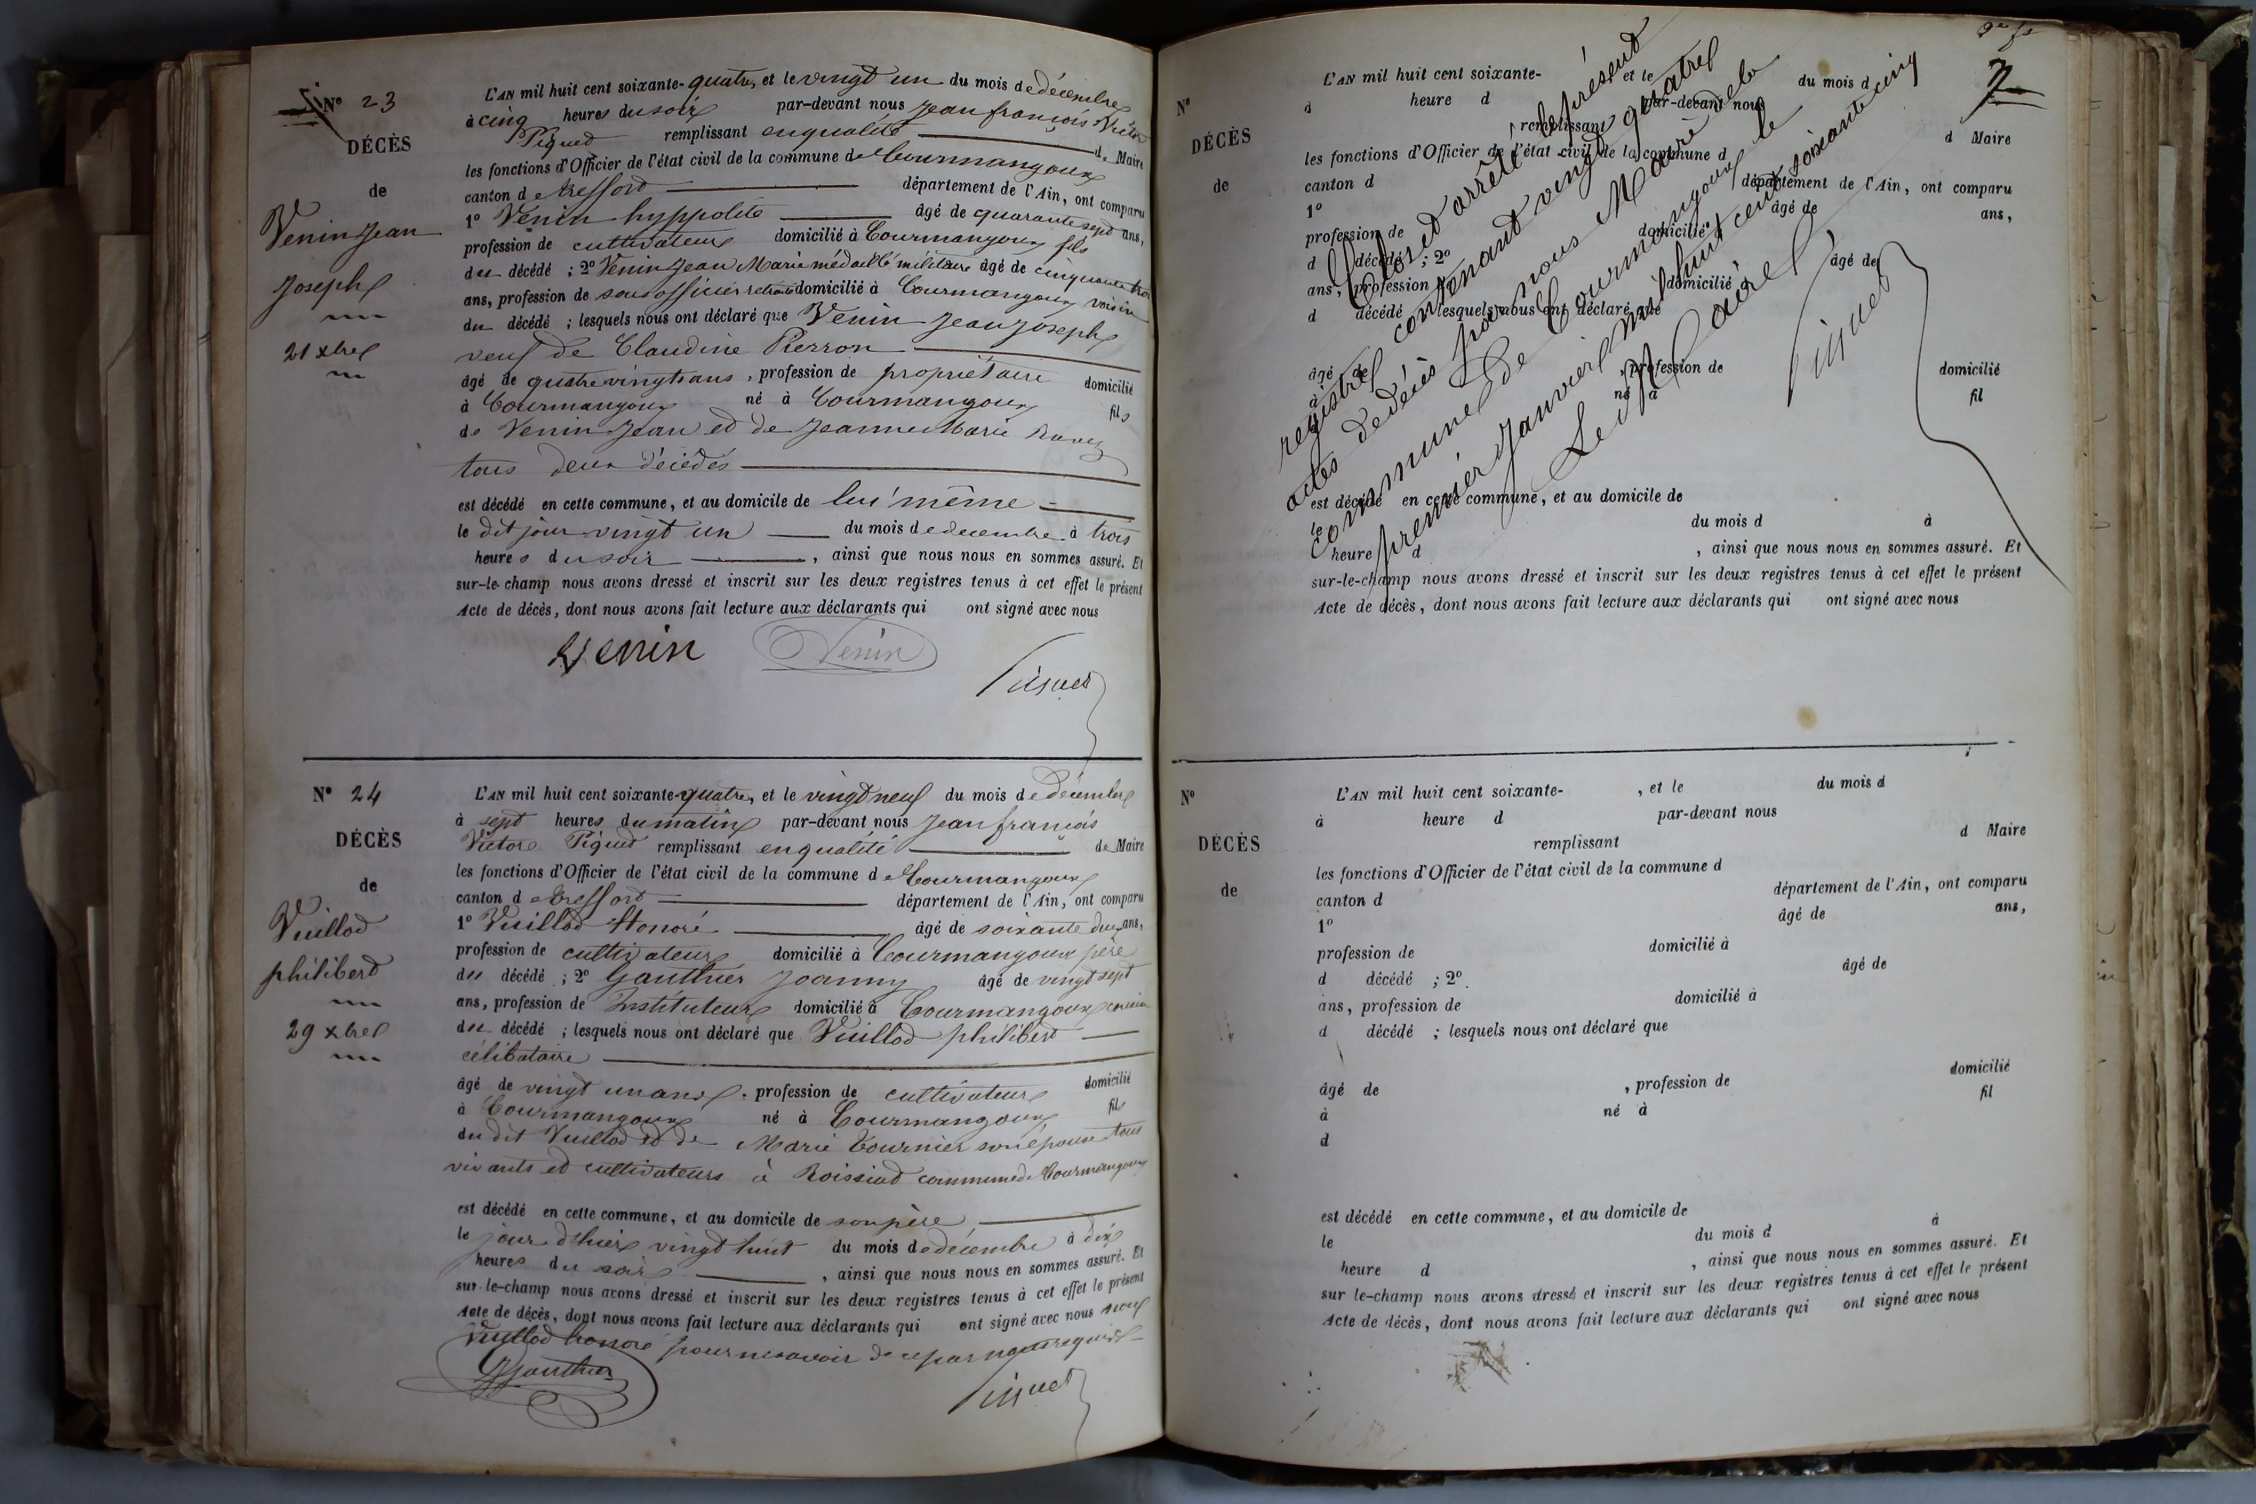 Nº 23
DÉCÈS
de
Venin Jean
Joseph
21 xbre
L'AN mil huit cent soixante-quatre, et le vingt un du mois de décembre
à cinq heures du soir par-devant nous Jean françois Victor
Piquet remplissant en qualité de Maire
les fonctions d'Officier de l'état civil de la commune de Courmangoux
canton de treffort département de l'Ain, ont comparu
1º Venin hyppolite âgé de quarante sept ans,
profession de cultivateur domicilié à Courmangoux fils
du décédé ; 2º Venin Jean Marie médaillé militaire âgé de cinquante trois
ans, profession de sous officier retraité domicilié à Courmangoux voisin
du décédé ; lesquels nous ont déclaré que Venin Jean Joseph
veuf de Claudine Pierron
âgé de quatre vingts ans, profession de propriétaire domicilié
à Courmangoux né à Courmangoux fils
de Venin Jean et de Jeanne Marie
tous deux décédés
est décédé en cette commune, et au domicile de lui même
le dit jour vingt un du mois de decembre à trois
heures du soir, ainsi que nous nous en sommes assuré. Et
sur-le-champ nous avons dressé et inscrit sur les deux registres tenus à cet effet le présent
Acte de décès, dont nous avons fait lecture aux déclarants qui ont signé avec nous
Venin Venin
Piquet
Nº 24
DÉCÈS
de
Vuillod
philibert
29 xbre
L'AN mil huit cent soixante-quatre, et le vingt neuf du mois de décembre
à sept heures du matin par-devant nous Jean françois
Victor Piquet remplissant en qualité de Maire
les fonctions d'Officier de l'état civil de la commune de Courmangoux
canton de treffort département de l'Ain, ont comparu
1º Vuillod Honoré âgé de soixante deux ans,
profession de cultivateur domicilié à Courmangoux père
du décédé ; 2º Gauthier Joanny âgé de vingt sept
ans, profession de Instituteur domicilié à Courmangoux
du décédé ; lesquels nous ont déclaré que Vuillod philibert
célibataire
âgé de vingt un ans, profession de cultivateur domicilié
à Courmangoux né à Courmangoux fils
du dit Vuillod et de Marie Tournier son épouse tous
vivants et cultivateurs à Roissiat commune de Courmangoux
est décédé en cette commune, et au domicile de son père
le jour d'hier vingt huit du mois de décembre à dix
heures du soir, ainsi que nous nous en sommes assuré. Et
sur-le-champ nous avons dressé et inscrit sur les deux registres tenus à cet effet le présent
Acte de décès, dont nous avons fait lecture aux déclarants qui ont signé avec nous non
Vuillod honoré pour ne savoir de ce par nous requis
Gauthier
Piquet
Clos et arrêté le présent
registre contenant vingt quatre
actes de décès par nous Maire de la
commune de Courmangoux le
premier Janvier mil huit cent soixante cinq
Le Maire
Piquet
Nº
DÉCÈS
de
L'AN mil huit cent soixante- et le du mois d
à heure d par-devant nous
remplissant d Maire
les fonctions d'Officier de l'état civil de la commune d
canton d département de l'Ain, ont comparu
1º âgé de ans,
profession de domicilié à
d décédé ; 2º âgé de
ans, profession de domicilié à
d décédé lesquels nous ont déclaré que
âgé de , profession de domicilié
à né à fil
est décédé en cette commune, et au domicile de
le du mois d à
heure d , ainsi que nous nous en sommes assuré. Et
sur-le-champ nous avons dressé et inscrit sur les deux registres tenus à cet effet le présent
Acte de décès, dont nous avons fait lecture aux déclarants qui ont signé avec nous
Nº
DÉCÈS
de
L'AN mil huit cent soixante- , et le du mois d
à heure d par-devant nous
remplissant d Maire
les fonctions d'Officier de l'état civil de la commune d
canton d département de l'Ain, ont comparu
1º âgé de ans,
profession de domicilié à
d décédé ; 2º âgé de
ans, profession de domicilié à
d décédé ; lesquels nous ont déclaré que
âgé de , profession de domicilié
à né à fil
d
est décédé en cette commune, et au domicile de
le du mois d à
heure d , ainsi que nous nous en sommes assuré. Et
sur le-champ nous avons dressé et inscrit sur les deux registres tenus à cet effet le présent
Acte de décès, dont nous avons fait lecture aux déclarants qui ont signé avec nous